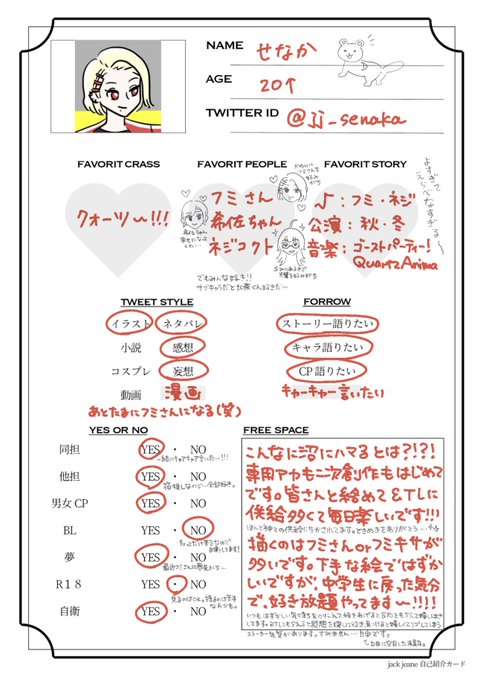 NAME せなか
AGE 20↑
TWITTER ID @jj_senaka
FAVORIT CRASS
クォーツ〜!!!
FAVORIT PEOPLE
フミさん
希佐ちゃん
ネジコクト
でもみんな好き!!
FAVORIT STORY
♪:フミ・ネジ
公演:秋・冬
音楽:ゴーストパーティー!
Quartz Anima
よすぎて
えらべなすぎる〜
TWEET STYLE
イラスト ネタバレ
小説 感想
コスプレ 妄想
動画 漫画
あとたまにフミさんになる(笑)
FORROW
ストーリー語りたい
キャラ語りたい
CP語りたい
キャーキャー言いたい
YES OR NO
同担 YES ・ NO
他担 YES ・ NO
男女CP YES ・ NO
BL YES ・ NO
夢 YES ・ NO
R18 YES ・ NO
自衛 YES ・ NO
FREE SPACE
こんなに沼にハマるとは?!?!
専用アカも二次創作もはじめて
です。皆さんと絡めて&TLに
供給多くて毎日楽しいです!!!
描くのはフミさんorフミキサが
多いです。下手な絵ではずか
しいですが、中学生に戻った気分
で、好き放題やってます〜!!!!
jack jeane 自己紹介カード